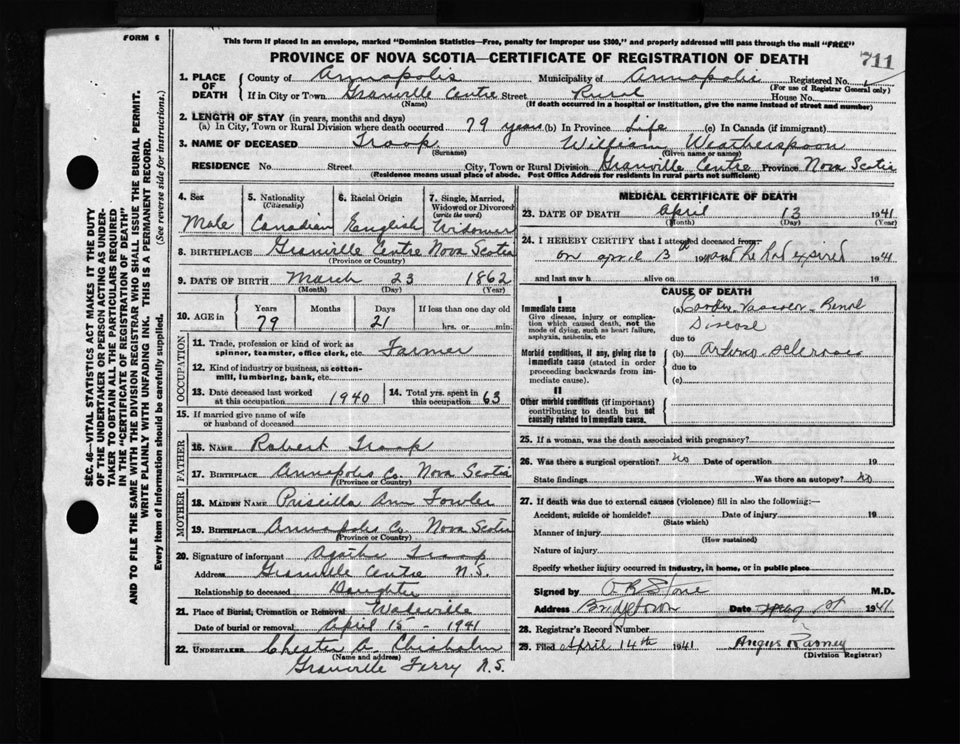 FORM 6
This form if placed in an envelope, marked "Dominion Statistics—Free, penalty for improper use $300," and properly addressed will pass through the mail "FREE"
PROVINCE OF NOVA SCOTIA—CERTIFICATE OF REGISTRATION OF DEATH
711
1. PLACE OF DEATH County of Annapolis Municipality of Annapolis Registered No.
(For use of Registrar General only)
If in City or Town Granville Centre Street Rural House No.
(Name) (If death occurred in a hospital or institution, give the name instead of street and number)
2. LENGTH OF STAY (in years, months and days)
(a) In City, Town or Rural Division where death occurred 79 years (b) In Province Life (c) In Canada (if immigrant)
3. NAME OF DECEASED Troop William Weatherspoon
(Surname) (Given name or names)
RESIDENCE No. Street City, Town or Rural Division Granville Centre Province Nova Scotia
(Residence means usual place of abode. Post Office Address for residents in rural parts not sufficient)
4. Sex 5. Nationality (Citizenship) 6. Racial Origin 7. Single, Married, Widowed or Divorced (write the word)
Male Canadian English Widower
8. BIRTHPLACE Granville Centre Nova Scotia
(Province or Country)
9. DATE OF BIRTH March 23 1862
(Month) (Day) (Year)
10. AGE in Years Months Days If less than one day old
79 21 hrs. or min.
OCCUPATION
11. Trade, profession or kind of work as spinner, teamster, office clerk, etc. Farmer
12. Kind of industry or business, as cotton-mill, lumbering, bank, etc.
13. Date deceased last worked at this occupation 1940 14. Total yrs. spent in this occupation 63
15. If married give name of wife or husband of deceased
FATHER
16. NAME Robert Troop
17. BIRTHPLACE Annapolis Co. Nova Scotia
(Province or Country)
MOTHER
18. MAIDEN NAME Priscilla Ann Fowler
19. BIRTHPLACE Annapolis Co. Nova Scotia
(Province or Country)
20. Signature of informant Agatha Troop
Address Granville Centre N.S.
Relationship to deceased Daughter
21. Place of Burial, Cremation or Removal Wadeville
Date of burial or removal April 15 - 1941
22. UNDERTAKER Chester A. Chisholm
(Name and address)
Granville Ferry N.S.
MEDICAL CERTIFICATE OF DEATH
23. DATE OF DEATH April 13 1941
(Month) (Day) (Year)
24. I HEREBY CERTIFY that I attended deceased from
on april 13th 19 and he had expired 1941
and last saw h alive on 19
CAUSE OF DEATH
I
Immediate cause
Give disease, injury or complication which caused death, not the mode of dying, such as heart failure, asphyxia, asthenia, etc
(a) Cardio-Vascular-Renal Disease
due to
Morbid conditions, if any, giving rise to immediate cause (stated in order proceeding backwards from immediate cause).
(b) Arterio-sclerosis
due to
(c)
II
Other morbid conditions (if important) contributing to death but not causally related to immediate cause.
25. If a woman, was the death associated with pregnancy?
26. Was there a surgical operation? no Date of operation 19
State findings Was there an autopsy? no
27. If death was due to external causes (violence) fill in also the following:—
Accident, suicide or homicide? Date of injury 19
(State which)
Manner of injury
(How sustained)
Nature of injury
Specify whether injury occurred in industry, in home, or in public place
Signed by Stone M.D.
Address Bridgetown Date 1941
28. Registrar's Record Number
29. Filed April 14th 1941 Angus Ramey
(Division Registrar)
SEC. 46—VITAL STATISTICS ACT MAKES IT THE DUTY
OF THE UNDERTAKER OR PERSON ACTING AS UNDER-
TAKER TO OBTAIN ALL THE PARTICULARS REQUIRED
IN THE "CERTIFICATE OF REGISTRATION OF DEATH"
AND TO FILE THE SAME WITH THE DIVISION REGISTRAR WHO SHALL ISSUE THE BURIAL PERMIT.
WRITE PLAINLY WITH UNFADING INK. THIS IS A PERMANENT RECORD.
Every item of information should be carefully supplied. (See reverse side for instructions.)